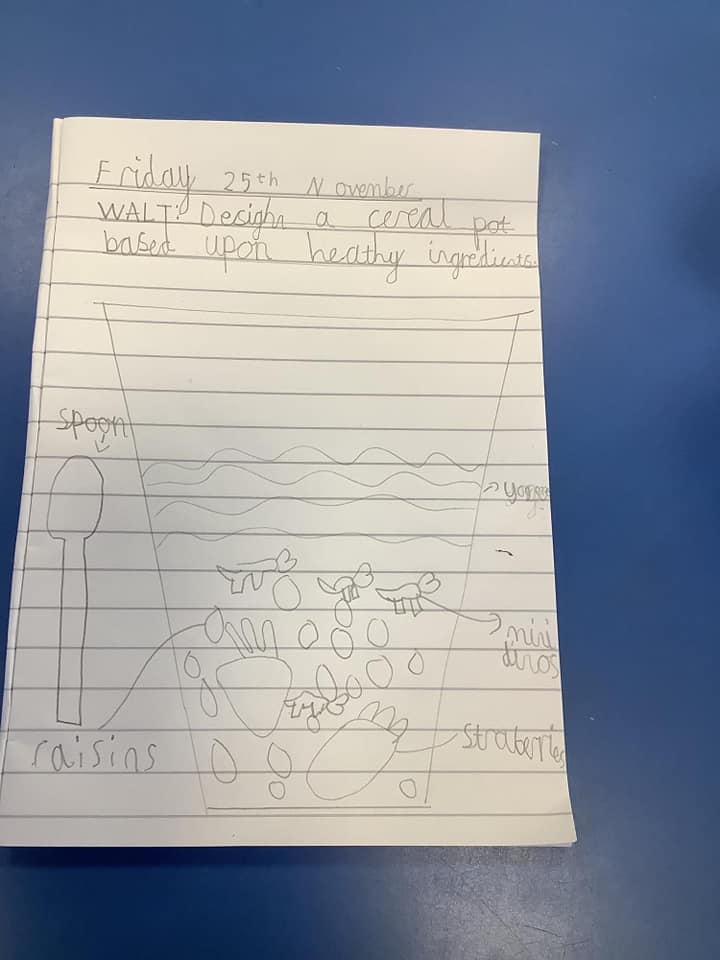 Friday 25th November
WALT: Design a cereal pot
based upon heathy ingredients.
spoon
mini
dinos
straberries
raisins